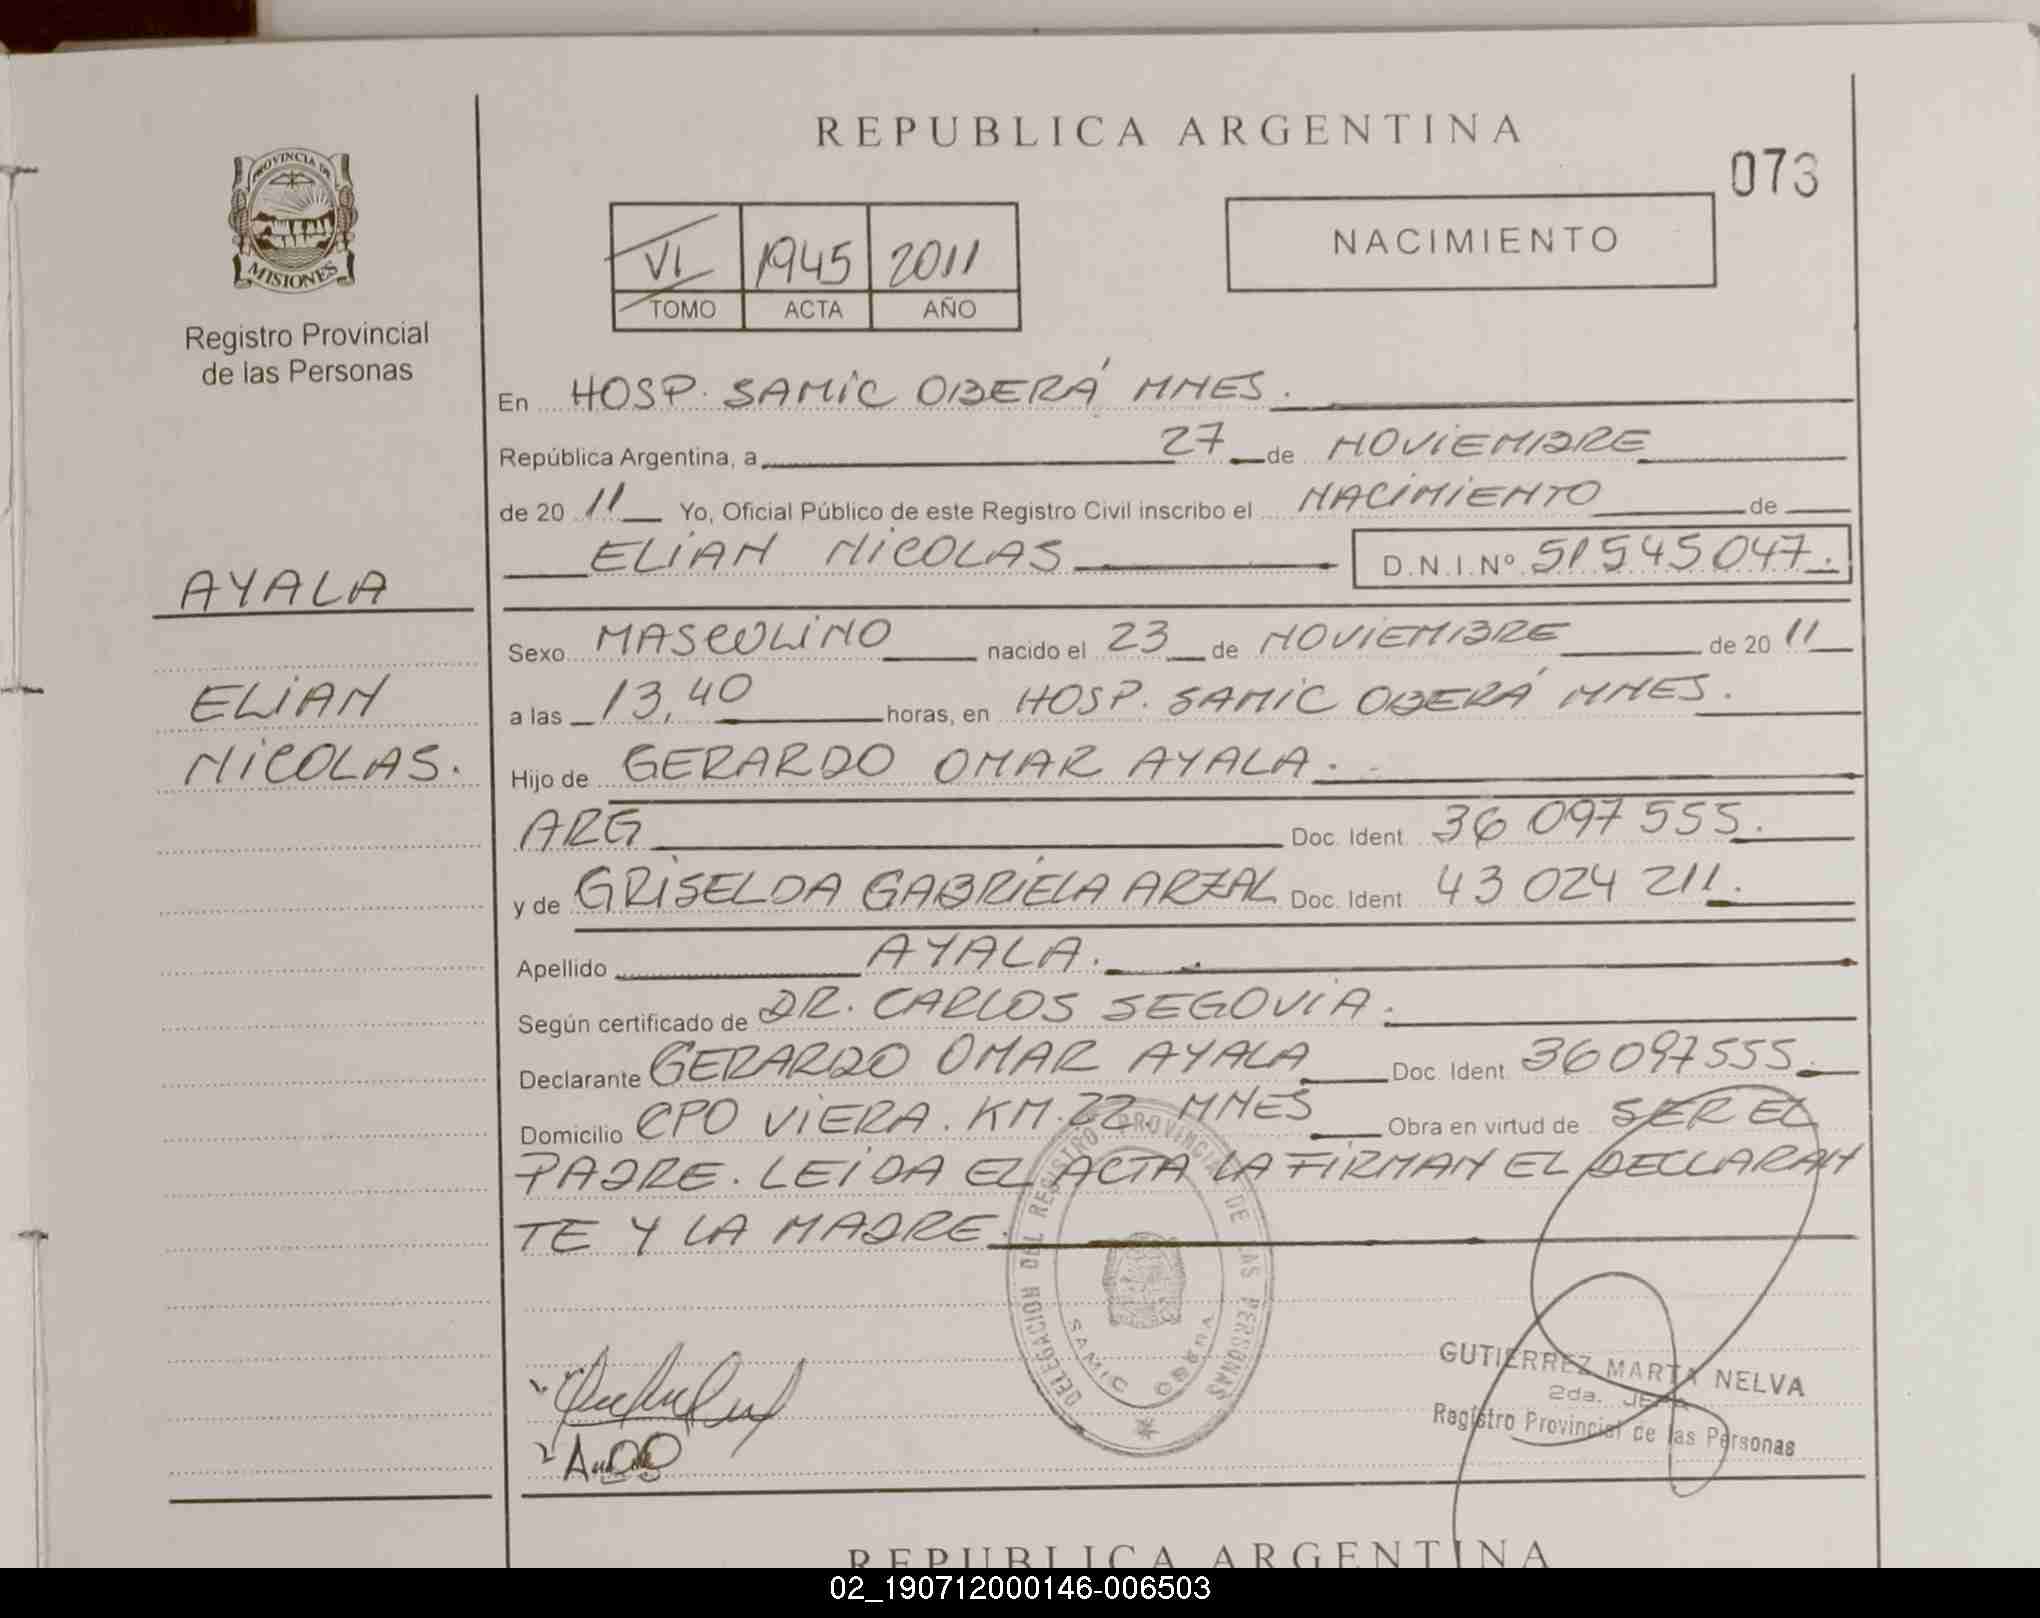 REPUBLICA ARGENTINA
073
PROVINCIA DE
MISIONES
Registro Provincial
de las Personas
VI 1945 2011
TOMO ACTA AÑO
NACIMIENTO
En HOSP. SAMIC OBERÁ MNES.
República Argentina, a 27 de NOVIEMBRE
de 20 11 Yo, Oficial Público de este Registro Civil inscribo el NACIMIENTO de
ELIAN NICOLAS D.N.I.Nº 51545047.
AYALA
ELIAN
NICOLAS.
Sexo MASCULINO nacido el 23 de NOVIEMBRE de 20 11
a las 13,40 horas, en HOSP. SAMIC OBERÁ MNES.
Hijo de GERARDO OMAR AYALA.
ARG Doc. Ident 36 097 555.
y de GRISELDA GABRIELA ARZAL Doc. Ident 43 024 211.
Apellido AYALA.
Según certificado de DR. CARLOS SEGOVIA.
Declarante GERARDO OMAR AYALA Doc. Ident 36097555.
Domicilio CPO VIERA. KM. 22. MNES Obra en virtud de SER EL
PADRE. LEIDA EL ACTA LA FIRMAN EL DECLARAN
TE Y LA MADRE.
DELEGACION DEL REGISTRO PROVINCIAL DE LAS PERSONAS
SAMIC OBERA
GUTIERREZ MARTA NELVA
2da. JEFA
Registro Provincial de las Personas
REPUBLICA ARGENTINA
02_190712000146-006503